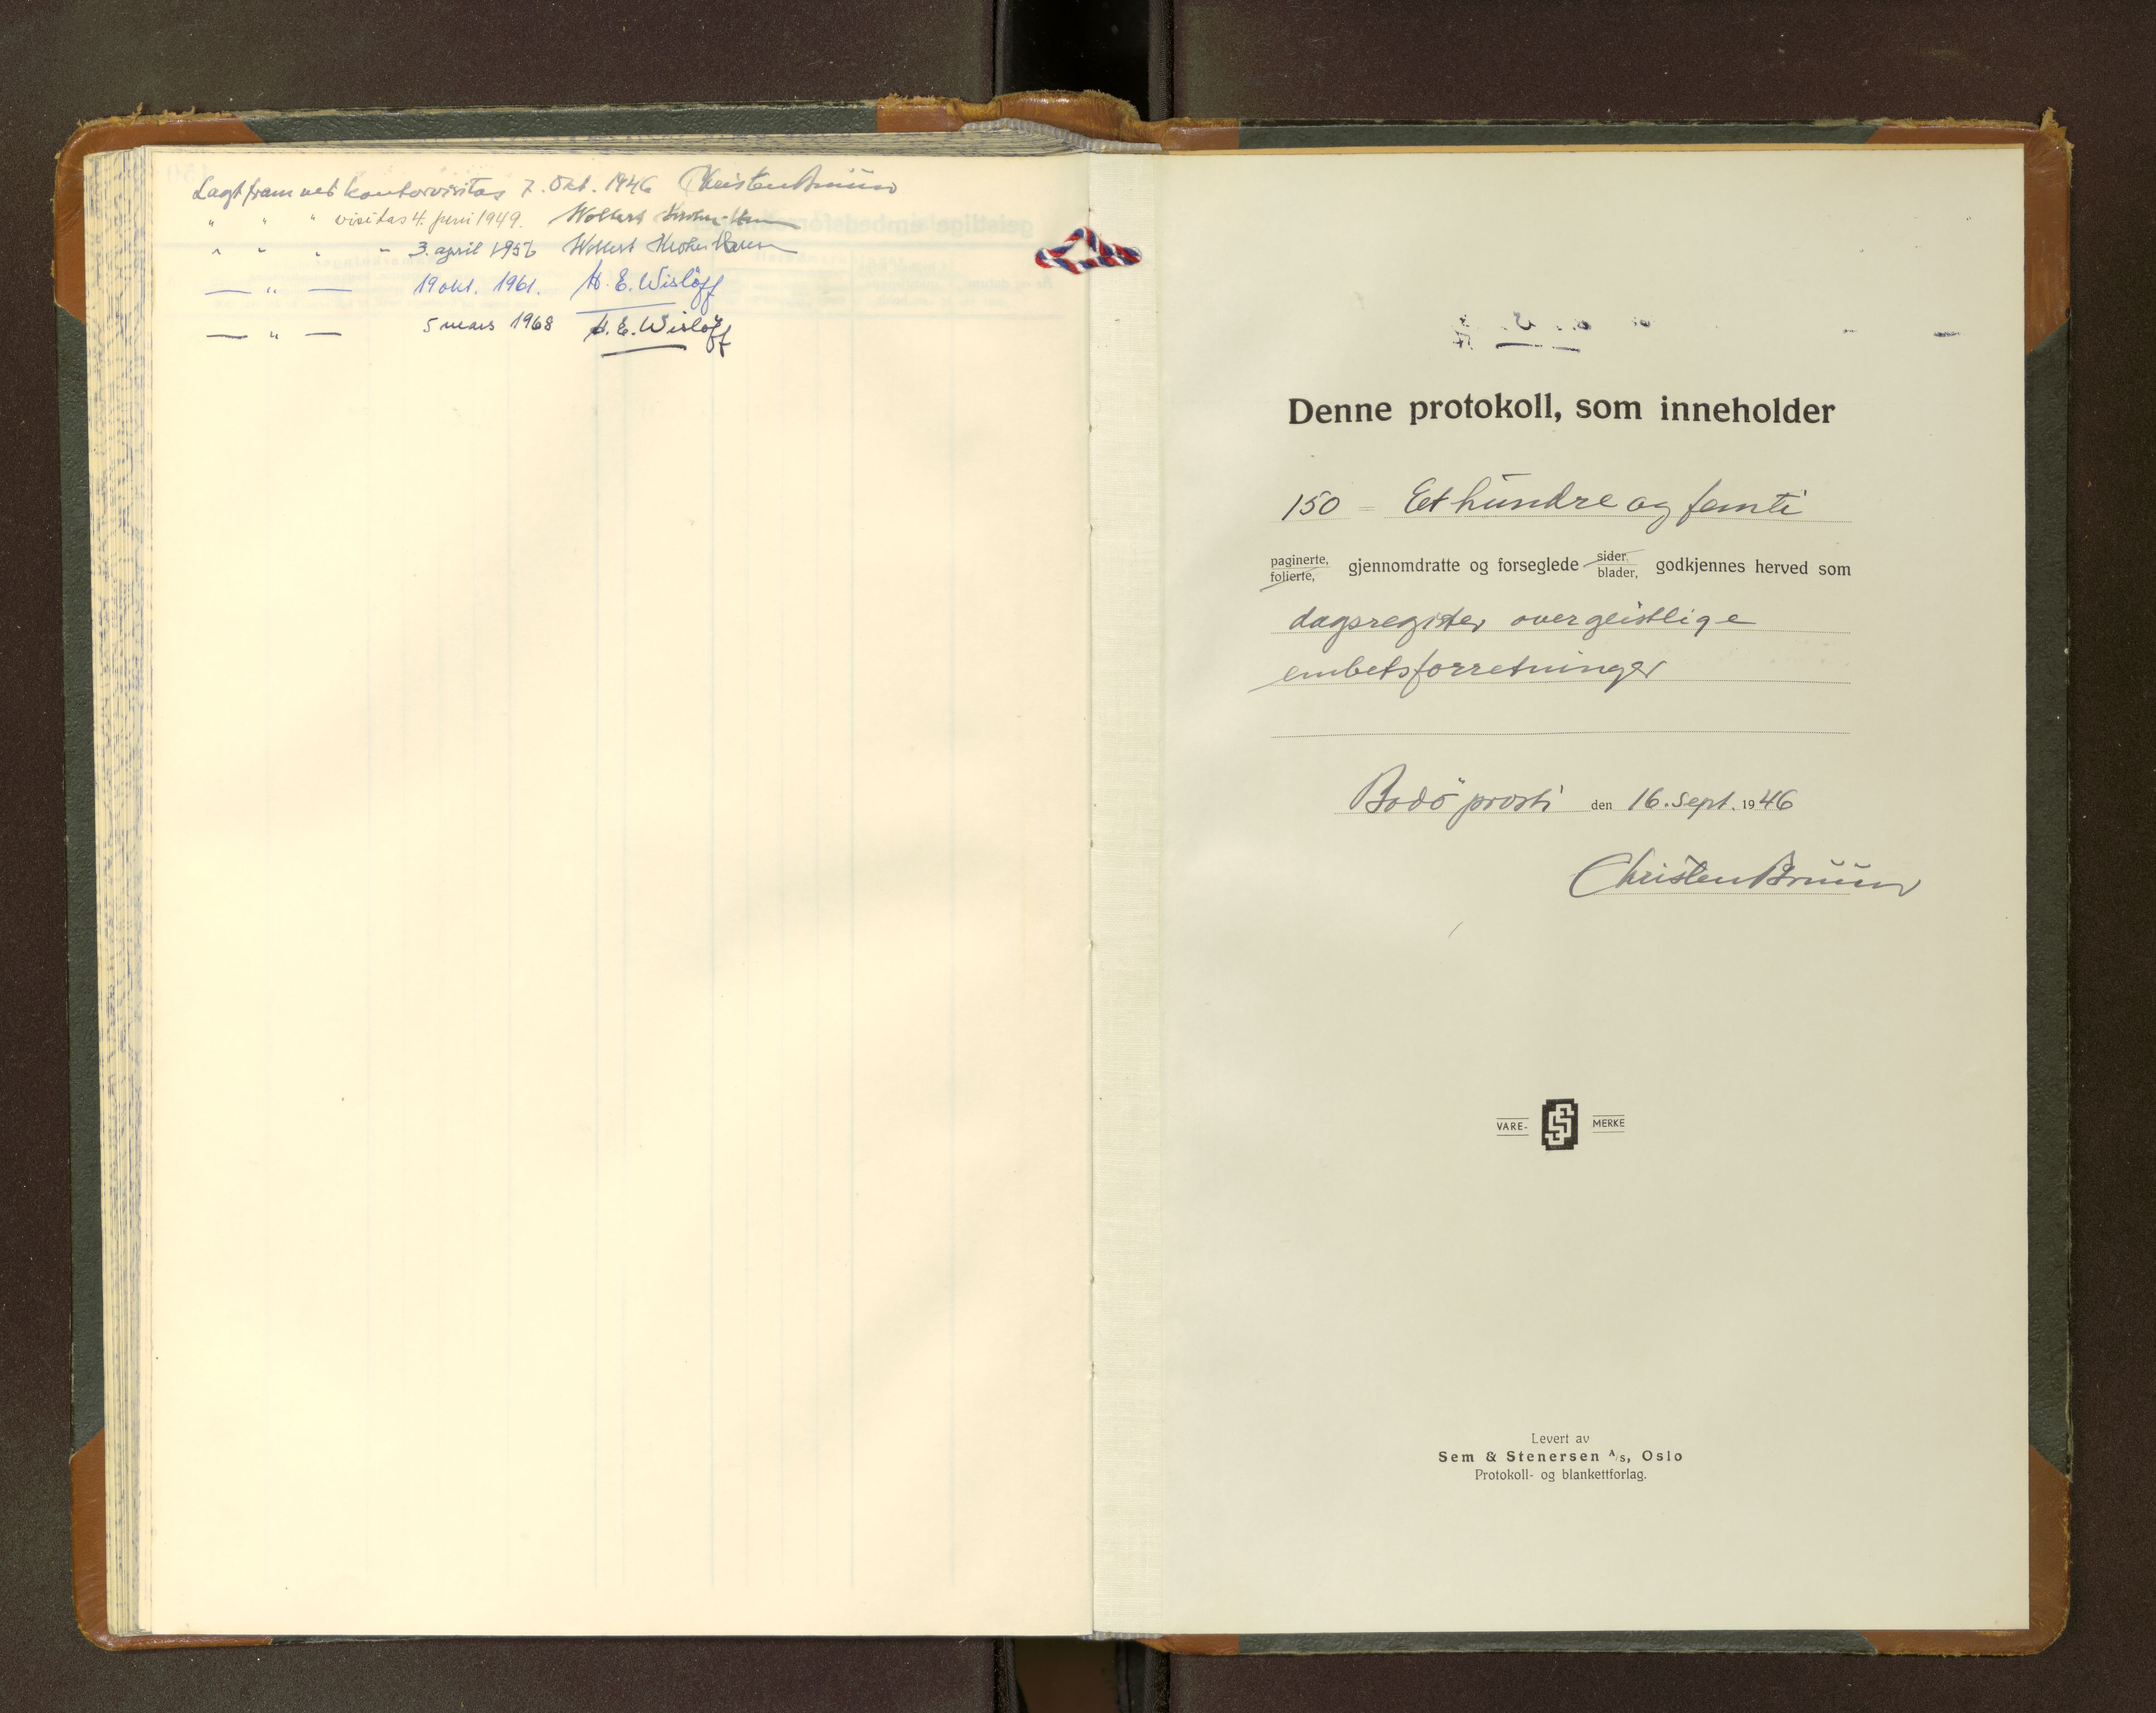 Lagt fram ved kontorvisitas 7. Okt. 1946 Christen Bruun
" " " visitas 4. juni 1949. Wollert Krohn-Hansen
" " " " 3. april 1956 Wollert Krohn Hansen
— " — 19 okt. 1961. H. E. Wisløff
— " — 5 mars 1968 H. E. Wisløff
Denne protokoll, som inneholder
150 = Et hundre og femti
paginerte, folierte, gjennomdratte og forseglede sider, blader, godkjennes herved som
dagsregister over geistlige
embetsforretninger
Bodö prosti den 16. sept. 1946
Christen Bruun
VARE- MERKE
Levert av
Sem & Stenersen A/s, Oslo
Protokoll- og blankettforlag.